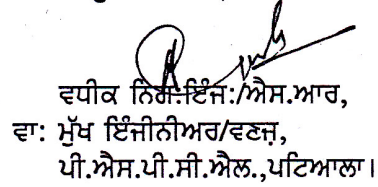 ਵਧੀਕ ਨਿਗ:ਇੰਜ:/ਐਸ.ਆਰ,
ਵਾ: ਮੁੱਖ ਇੰਜੀਨੀਅਰ/ਵਣਜ਼,
ਪੀ.ਐਸ.ਪੀ.ਸੀ.ਐਲ.,ਪਟਿਆਲਾ।